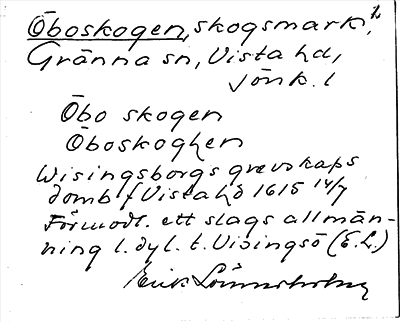 Öboskogen, skogsmark,
Gränna sn, Vista hd,
Jönk. l
Öbo skogen
Öboskoghen
Wisingsborgs grevskaps
domb f Vista hd 1615 14/7
Förmodl. ett slags allmän-
ning l. dyl. t. Visingsö (E.L.)
Erik